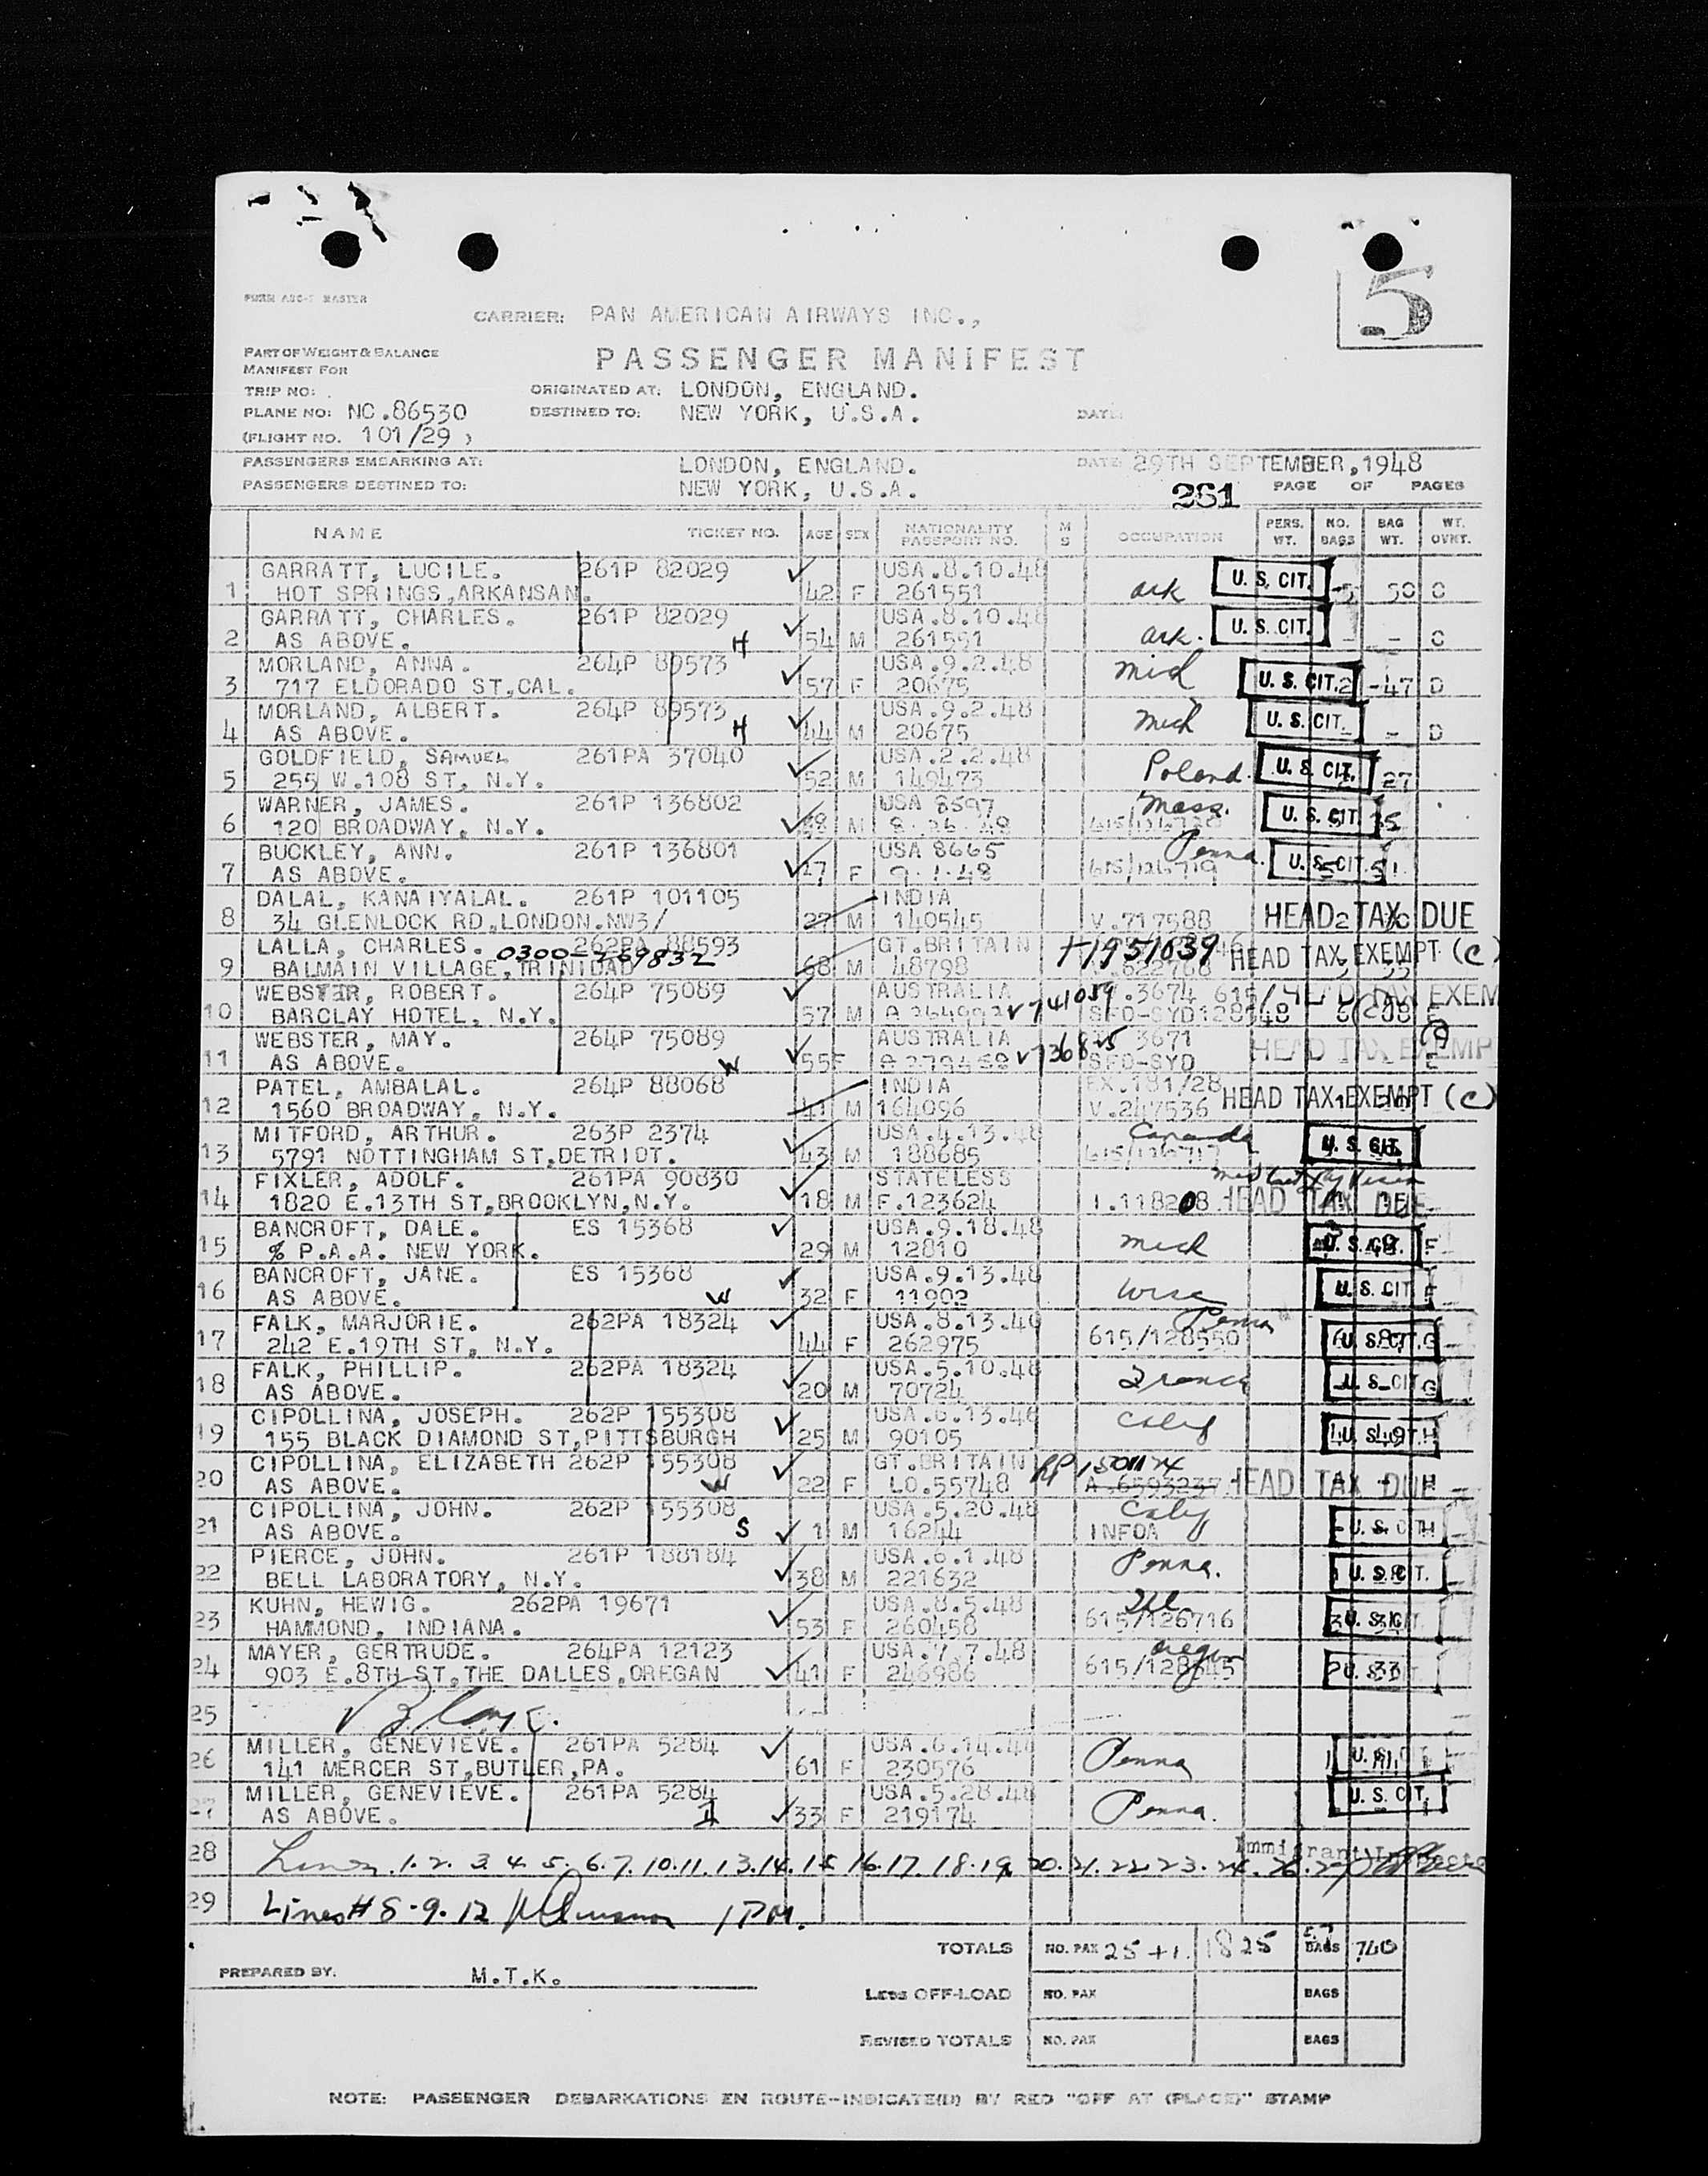 5
FORM ABC-1 MASTER
CARRIER: PAN AMERICAN AIRWAYS INC.,
PART OF WEIGHT & BALANCE
MANIFEST FOR
PASSENGER MANIFEST
TRIP NO:
ORIGINATED AT: LONDON, ENGLAND.
PLANE NO: NC.86530 DESTINED TO: NEW YORK, U.S.A. DATE:
(FLIGHT NO. 101/29 )
PASSENGERS EMBARKING AT: LONDON, ENGLAND. DATE: 29TH SEPTEMBER,1948
PASSENGERS DESTINED TO: NEW YORK, U.S.A. 261 PAGE OF PAGES
NAME TICKET NO. AGE SEX NATIONALITY PASSPORT NO. M S OCCUPATION PERS. WT. NO. BAGS BAG WT. WT. OVNT.
GARRATT, LUCILE. 261P 82029 USA.8.10.48 U.S. CIT.
1 HOT SPRINGS,ARKANSAN. 42 F 261551 ark 5 50 C
GARRATT, CHARLES. 261P 82029 USA.8.10.48 U.S. CIT.
2 AS ABOVE. H 54 M 261551 ark. - - C
MORLAND, ANNA. 264P 89573 USA.9.2.48 Mich
3 717 ELDORADO ST,CAL. 57 F 20675 U.S. CIT. 2 -47 D
MORLAND, ALBERT. 264P 89573 USA.9.2.48 Mich U.S. CIT.
4 AS ABOVE. H 44 M 20675 - - D
GOLDFIELD, SAMUEL 261PA 37040 USA.2.2.48 Poland. U.S. CIT.
5 255 W.108 ST, N.Y. 52 M 149473 27
WARNER, JAMES. 261P 136802 USA 8597 Mass.
6 120 BROADWAY, N.Y. M 8.26.48 U.S. CIT. 35
BUCKLEY, ANN. 261P 136801 USA 8665 Penna.
7 AS ABOVE. 27 F 9.1.48 615/126719 U.S. CIT. 51.
DALAL, KANAIYALAL. 261P 101105 INDIA
8 34 GLENLOCK RD,LONDON.NW3/ 27 M 140545 V.717588 HEAD TAX DUE 2
LALLA, CHARLES. 262PA 88593 GT.BRITAIN
0300-269832 H1951639 HEAD TAX EXEMPT (C)
9 BALMAIN VILLAGE,TRINIDAD 68 M 48798 622768
WEBSTER, ROBERT. 264P 75089 AUSTRALIA V741059 .3674 615/ HEAD TAX EXEM
10 BARCLAY HOTEL, N.Y. 57 M A 264992 SFO-SYD128548 E
WEBSTER, MAY. 264P 75089 AUSTRALIA 3671
11 AS ABOVE. W 55F A 279458 SFO-SYD HEAD TAX EXEMP E
PATEL, AMBALAL. 264P 88068 INDIA EX.181/28
12 1560 BROADWAY, N.Y. 41 M 164096 V.247536 HEAD TAX EXEMPT (C)
MITFORD, ARTHUR. 263P 2374 USA.4.13.48 Canada
13 5791 NOTTINGHAM ST,DETRIOT. 43 M 188685 615/126717 U.S. CIT.
FIXLER, ADOLF. 261PA 90830 STATELESS
14 1820 E.13TH ST,BROOKLYN,N.Y. 18 M F.123624 I.118208 HEAD TAX DUE
BANCROFT, DALE. ES 15368 USA.9.18.48
15 % P.A.A. NEW YORK. 29 M 12810 Mich U.S. CIT. F
BANCROFT, JANE. ES 15368 USA.9.13.48
16 AS ABOVE. W 32 F 11902 Wisc U.S. CIT. F
FALK, MARJORIE. 262PA 18324 USA.8.13.48 Penna
17 242 E.19TH ST, N.Y. 44 F 262975 615/128550 U.S. CIT. G
FALK, PHILLIP. 262PA 18324 USA.5.10.48
18 AS ABOVE. 20 M 70724 France U.S. CIT G
CIPOLLINA, JOSEPH. 262P 155308 USA.6.13.48
19 155 BLACK DIAMOND ST,PITTSBURGH 25 M 90105 U.S. CIT H
CIPOLLINA, ELIZABETH 262P 155308 GT.BRITAIN
20 AS ABOVE. W 22 F LO.55748 A.6593237 HEAD TAX DUE
CIPOLLINA, JOHN. 262P 155308 USA.5.20.48
21 AS ABOVE. S 1 M 16244 INFOA U.S. CIT H
PIERCE, JOHN. 261P 188184 USA.6.1.48
22 BELL LABORATORY, N.Y. 38 M 221632 Penna. U.S. CIT.
KUHN, HEWIG. 262PA 19671 USA.8.5.48 Ill
23 HAMMOND, INDIANA. 53 F 260458 615/126716 U.S. CIT.
MAYER, GERTRUDE. 264PA 12123 USA.7.7.48 Oregon
24 903 E.8TH ST,THE DALLES,OREGAN 41 F 246986 615/128545 2 U.S. 33
25 Blank.
MILLER, GENEVIEVE. 261PA 5284 USA.6.14.48
26 141 MERCER ST,BUTLER,PA. 61 F 230576 Penna U.S. CIT
MILLER, GENEVIEVE. 261PA 5284 USA.5.28.48
27 AS ABOVE. 33 F 219174 Penna. U.S. CIT.
Immigrant Inspector
28 Lines .1.2.3.4.5.6.7.10.11.13.14.15 16.17.18.19 20.21.22.23.24.26.27
29 Lines # 8-9-12 1PM.
TOTALS NO. PAX 25 +1. 1825 BAGS 740
PREPARED BY. M.T.K.
LESS OFF-LOAD NO. PAX BAGS
REVISED TOTALS NO. PAX BAGS
NOTE: PASSENGER DEBARKATIONS EN ROUTE-INDICATE(D) BY RED "OFF AT (PLACE)" STAMP